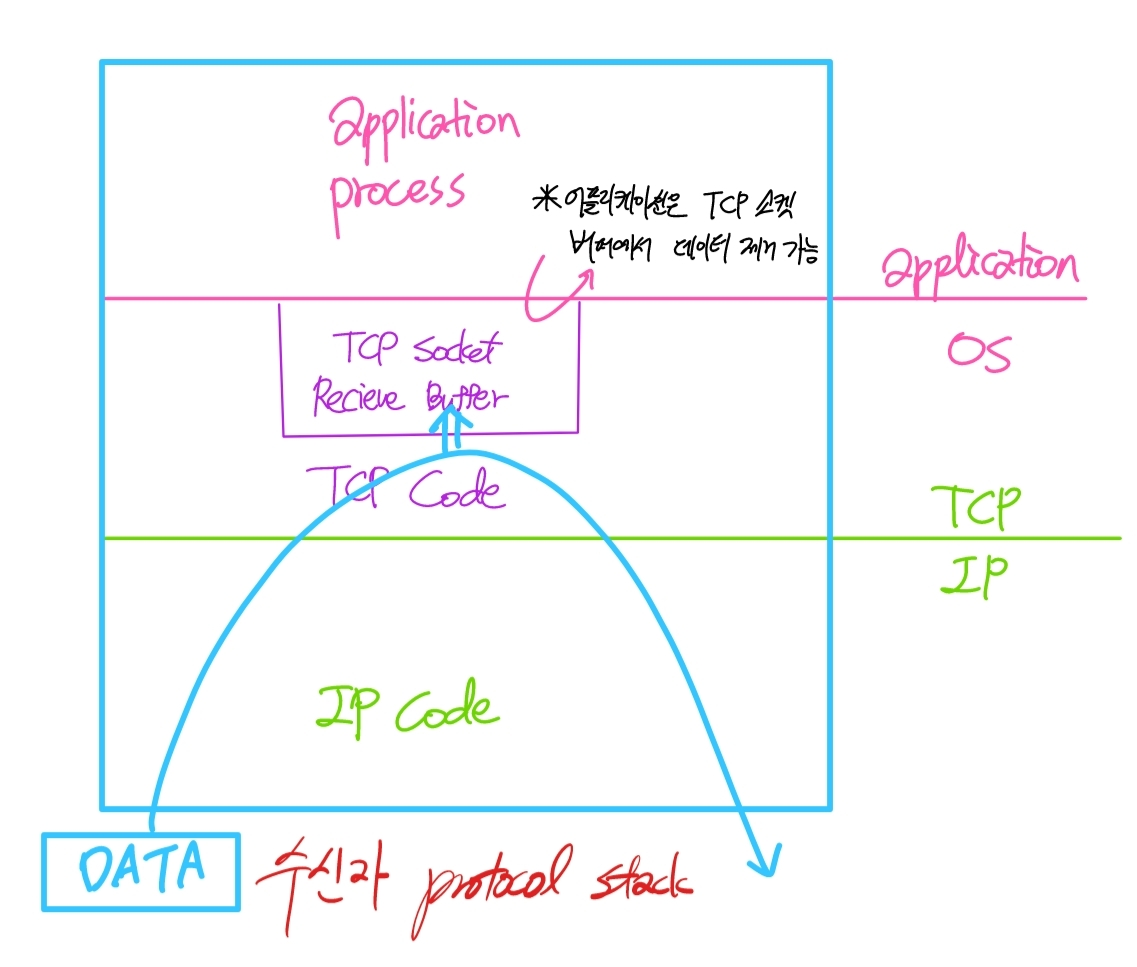 application
process
* 어플리케이션은 TCP 소켓
버퍼에서 데이터 제거 가능
application
OS
TCP Socket
Recieve Buffer
TCP Code
TCP
IP
IP Code
DATA
수신자 protocol stack